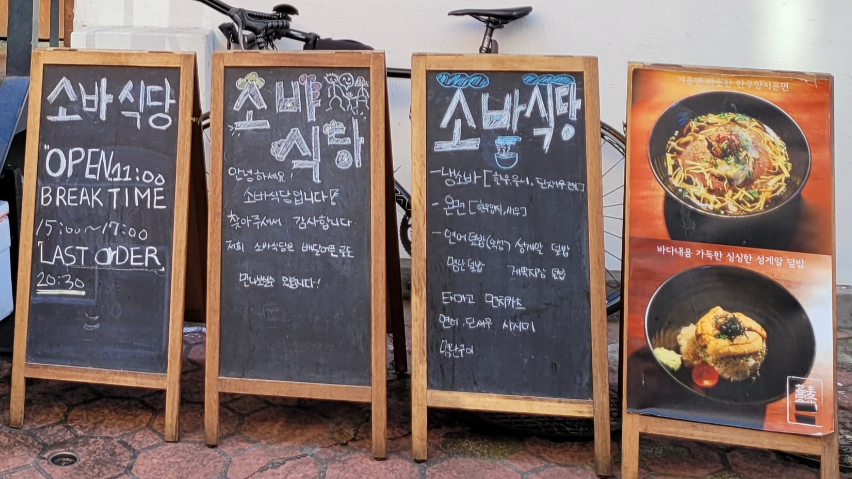 소바식당
"OPEN 11:00
BREAKTIME
15:00~17:00
LAST ORDER
20:30
소바
식당
안녕하세요
소바식당입니다!
찾아주셔서 감사합니다
저희 소바식당은 배달어플로도
만나보실수 있습니다!
소바식당
-냉소바 [한우우니, 단새우
-온면 [한우양지, 새우]
-연어덮밥 성게알 덮밥
명란덮밥 덮밥
타마고 멘치카츠
연어, 단새우 사시미
명란구이
한우양지온면
바다내음 가득한 싱싱한 성게알 덮밥